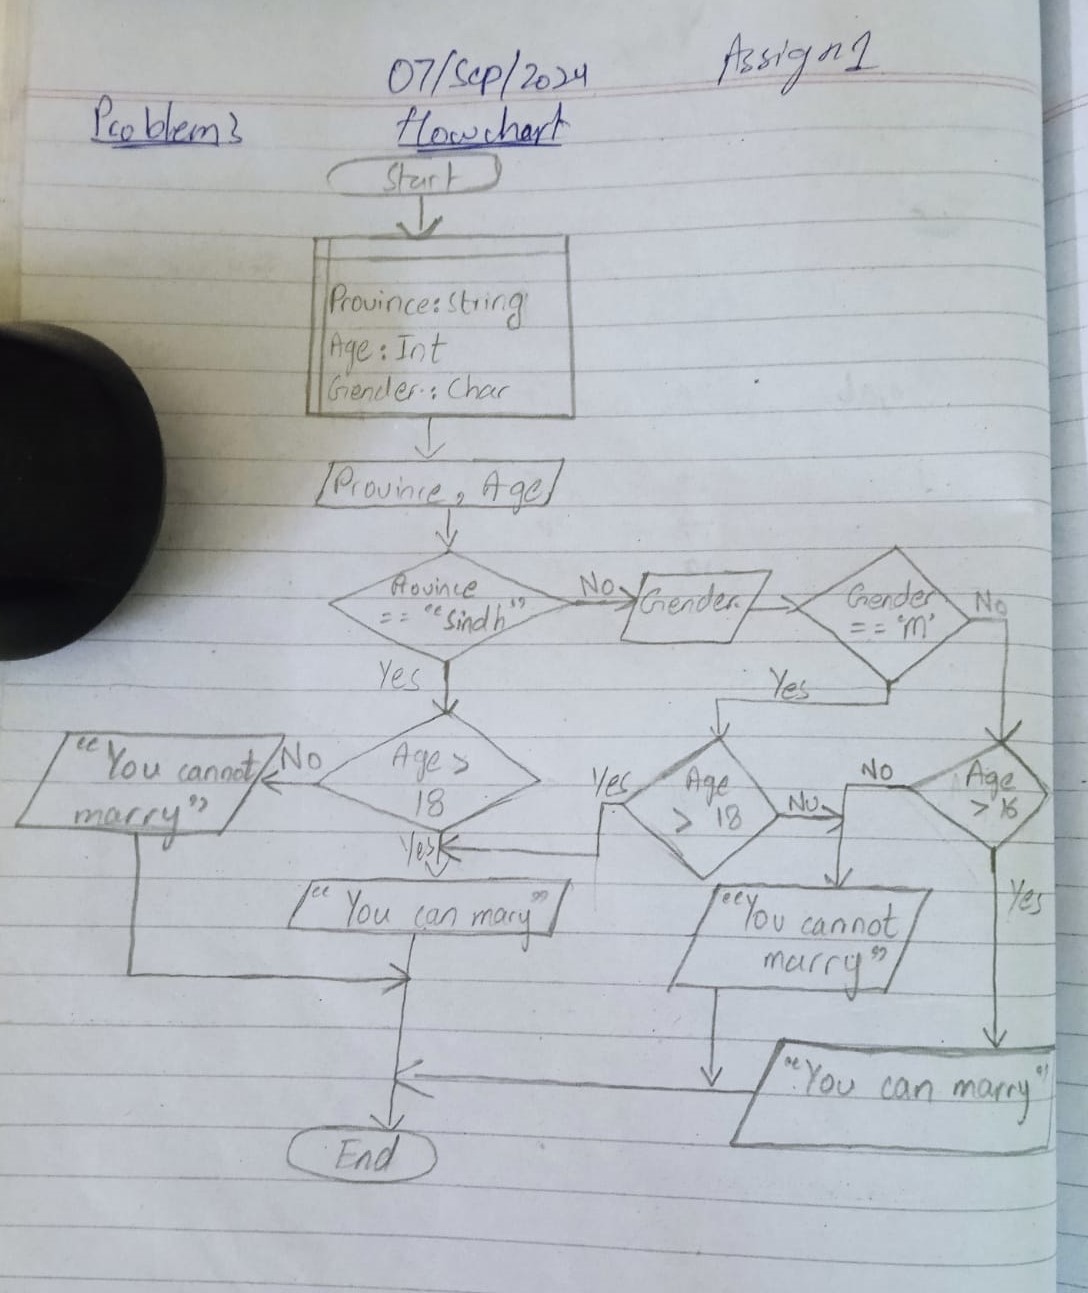 07/Sep/2024 Assign 1
Problem 3 flowchart
Start
Province: String
Age: Int
Gender: Char
Province, Age
Province
== "Sindh"
No
Gender
Gender
== 'M'
No
Yes
Yes
"You cannot
marry"
No
Age >
18
Yes
Age
> 18
No
No
Age
> 16
Yes
"You can mary"
"You cannot
marry"
Yes
"You can marry"
End